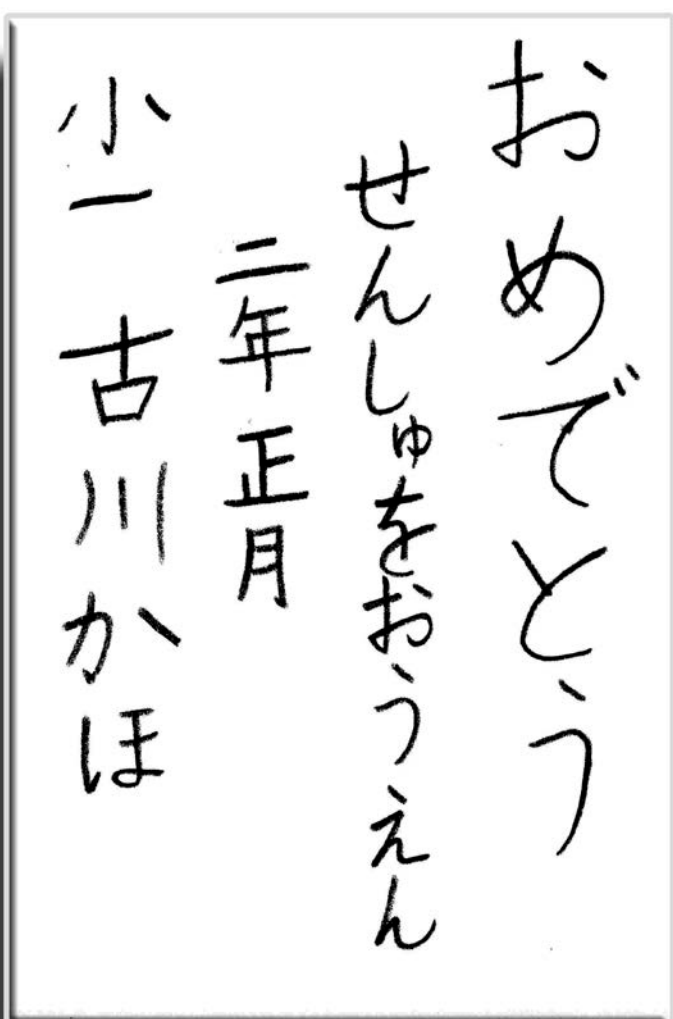 おめでとう
せんしゅをおうえん
二年 正月
小一 古川かほ